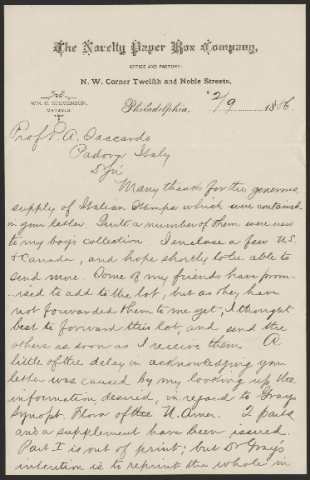 The Novelty Paper Box Company,
OFFICE AND FACTORY:
N. W. Corner Twelfth and Noble Streets,
WM. C. STEVENSON,
MANAGER.
Philadelphia, 2/9 1886
Prof P. A. Saccardo
Padova Italy
D Sir
Many thanks for the generous
supply of Italian stamps which were contained
in your letter. Quite a number of them were new
to my boy's collection. I enclose a few U.S.
& Canada, and hope shortly to be able to
send more. Some of my friends have prom-
ised to add to the lot, but as they have
not forwarded them to me yet, I thought
best to forward this lot, and send the
others as soon as I receive them. A
little of the delay in acknowledging your
letter was caused by my looking up the
information desired, in regard to Grays
Synopt. Flora of the N. Amer. 2 parts
and a supplement have been issued.
Part I is out of print; but Dr Gray's
intention is to reprint the whole in